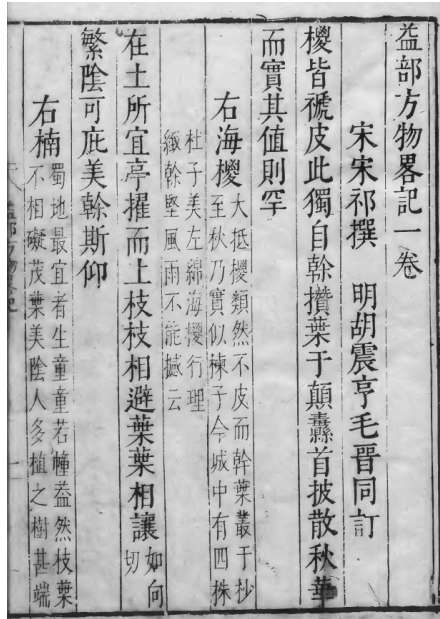 益部方物畧記一卷
宋宋祁撰 明胡震亨毛晉同訂
椶皆褫皮此獨自幹攢葉于顛纛首披散秋華
而實其值則罕
右海椶大抵椶類然不皮而幹葉叢于杪
至秋乃實似楝子今城中有四株
杜子美左綿海椶行理
緻幹堅風雨不能撼云
在土所宜亭擢而上枝枝相避葉葉相讓如向
切
繁陰可庇美幹斯仰
右楠蜀地最宜者生童童若幢葢然枝葉
不相礙茂葉美陰人多植之樹甚端
益部方物記
一